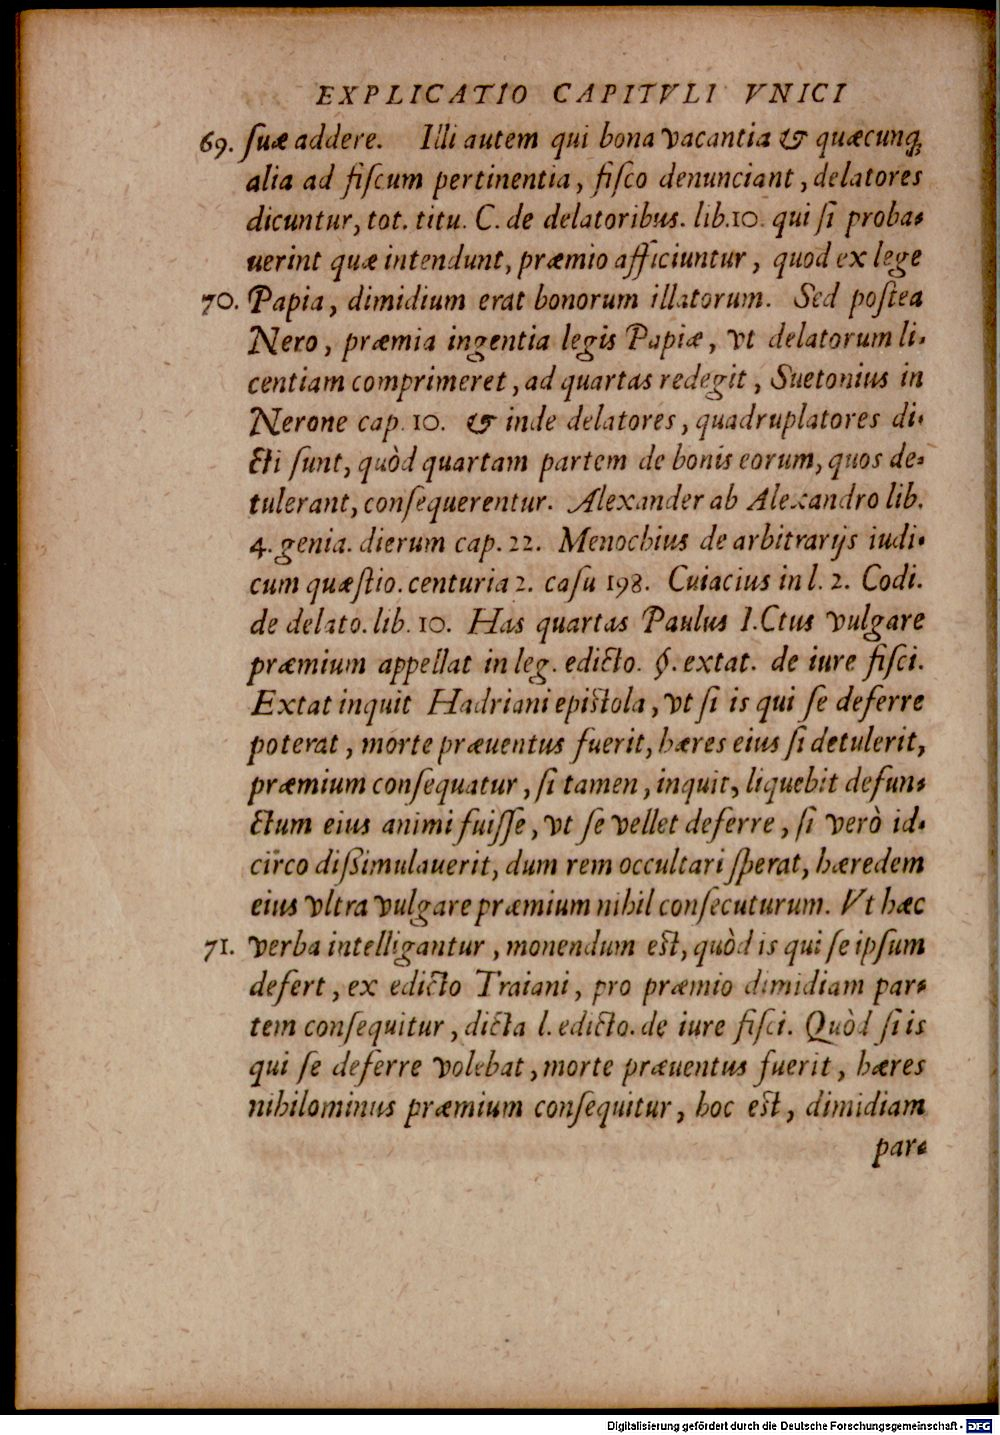 EXPLICATIO CAPITVLI VNICI
69. ſuæ addere. Illi autem qui bona vacantia & quæcunq;
alia ad fiſcum pertinentia, fiſco denunciant, delatores
dicuntur, tot. titu. C. de delatoribus. lib.10. qui ſi proba-
uerint quæ intendunt, præmio afficiuntur, quod ex lege
70. Papia, dimidium erat bonorum illatorum. Sed poſtea
Nero, præmia ingentia legis Papiæ, vt delatorum li-
centiam comprimeret, ad quartas redegit, Suetonius in
Nerone cap. 10. & inde delatores, quadruplatores di-
cti ſunt, quòd quartam partem de bonis eorum, quos de-
tulerant, conſequerentur. Alexander ab Alexandro lib.
4. genia. dierum cap. 22. Menochius de arbitrarijs iudi-
cum quæſtio. centuria 2. caſu 198. Cuiacius in l. 2. Codi.
de delato. lib. 10. Has quartas Paulus I.Ctus vulgare
præmium appellat in leg. edicto. §. extat. de iure fiſci.
Extat inquit Hadriani epiſtola, vt ſi is qui ſe deferre
poterat, morte præuentus fuerit, hæres eius ſi detulerit,
præmium conſequatur, ſi tamen, inquit, liquebit defun-
ctum eius animi fuiſſe, vt ſe vellet deferre, ſi verò id-
circo dißimulauerit, dum rem occultari ſperat, hæredem
eius vltra vulgare præmium nihil conſecuturum. Vt hæc
71. verba intelligantur, monendum eſt, quòd is qui ſe ipſum
defert, ex edicto Traiani, pro præmio dimidiam par-
tem conſequitur, dicta l. edicto. de iure fiſci. Quòd ſi is
qui ſe deferre volebat, morte præuentus fuerit, hæres
nihilominus præmium conſequitur, hoc eſt, dimidiam
par-
Digitalisierung gefördert durch die Deutsche Forschungsgemeinschaft - DFG